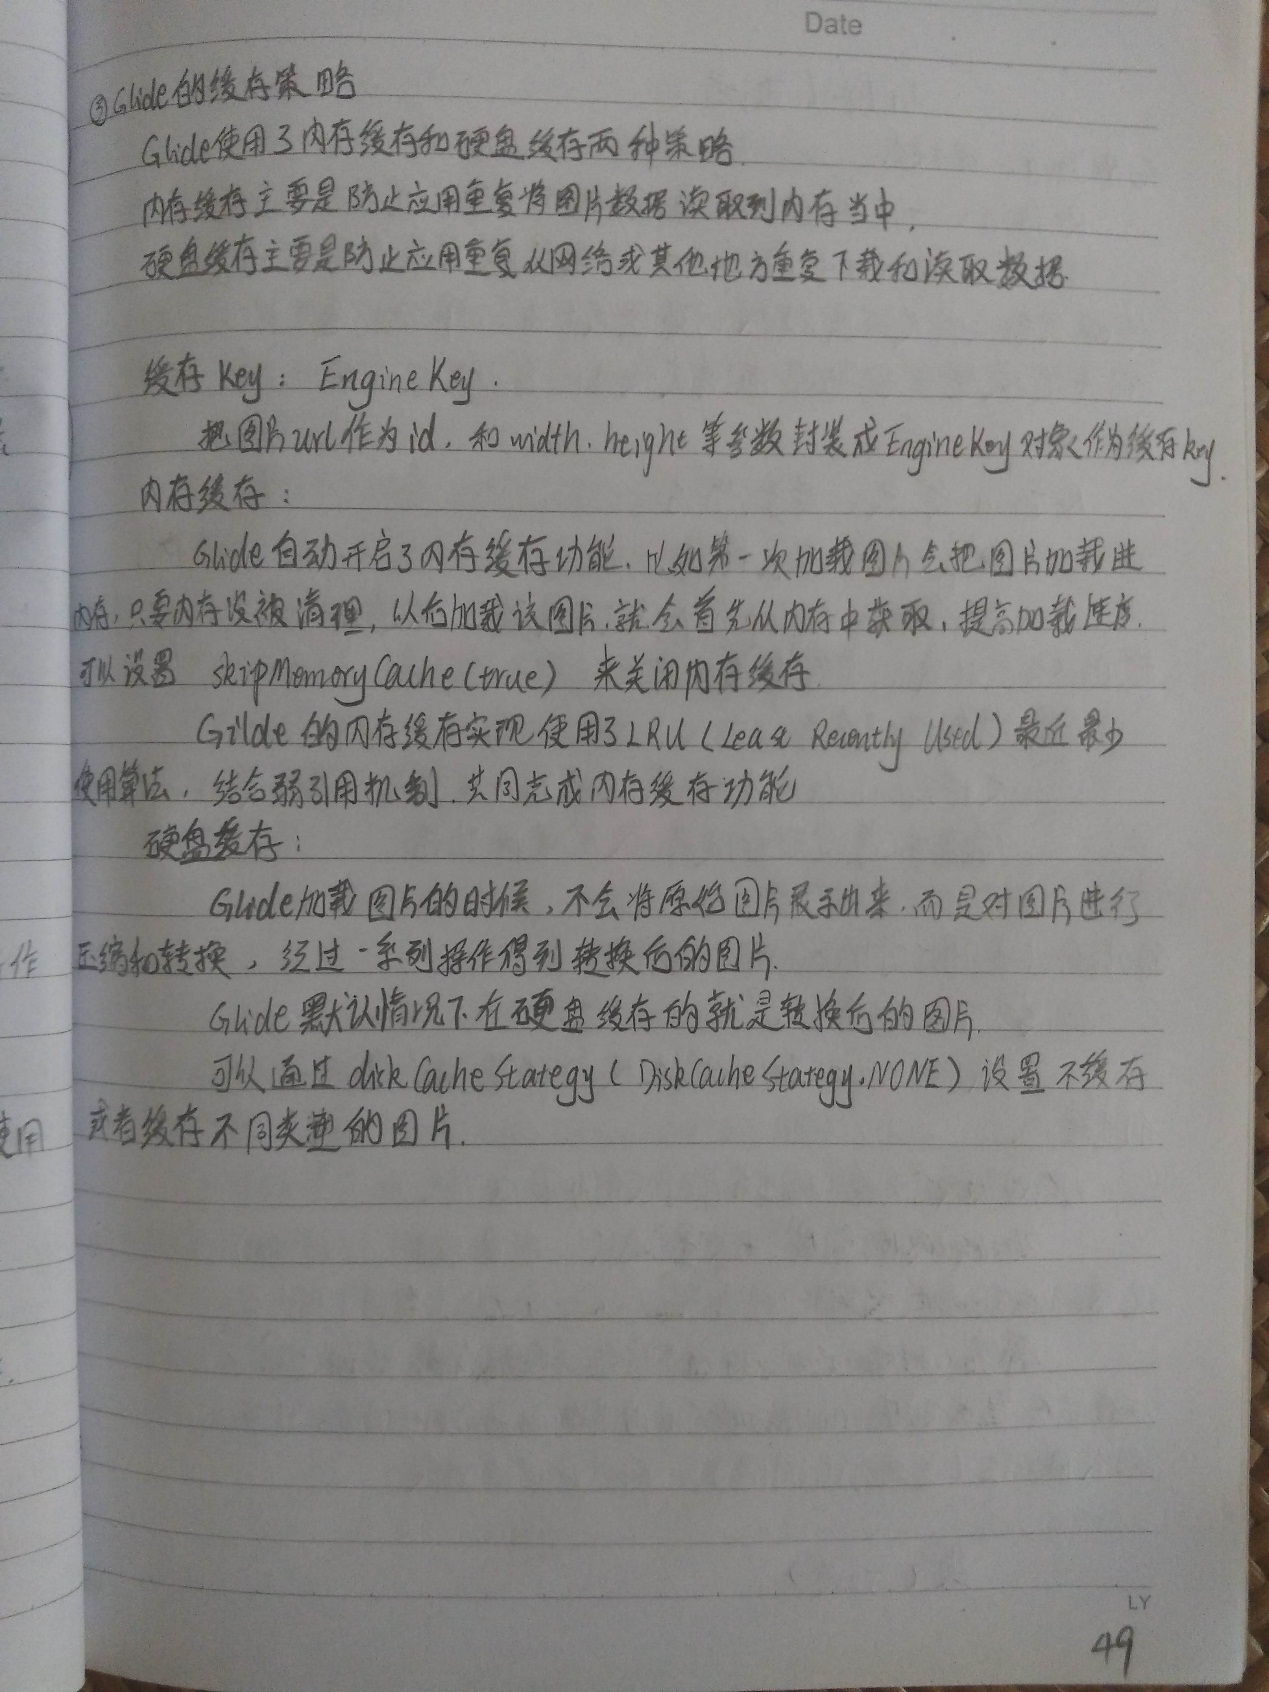 Date
③Glide的缓存策略
Glide使用了内存缓存和硬盘缓存两种策略.
内存缓存主要是防止应用重复将图片数据读取到内存当中,
硬盘缓存主要是防止应用重复从网络或其他地方重复下载和读取数据.
缓存Key: EngineKey.
把图片url作为id, 和width, height等参数封装成EngineKey对象作为缓存key.
内存缓存:
Glide自动开启了内存缓存功能, 比如第一次加载图片会把图片加载进
内存, 只要内存没被清理, 以后加载该图片, 就会首先从内存中获取, 提高加载速度.
可以设置 skipMemoryCache(true) 来关闭内存缓存.
Gilde的内存缓存实现使用了LRU (Least Recently Used) 最近最少
使用算法, 结合弱引用机制, 共同完成内存缓存功能
硬盘缓存:
Glide加载图片的时候, 不会将原始图片展示出来, 而是对图片进行
作 压缩和转换, 经过一系列操作得到转换后的图片.
Glide默认情况下在硬盘缓存的就是转换后的图片.
可以通过 diskCacheStategy ( DiskCacheStategy.NONE) 设置不缓存
使用 或者缓存不同类型的图片.
LY
49